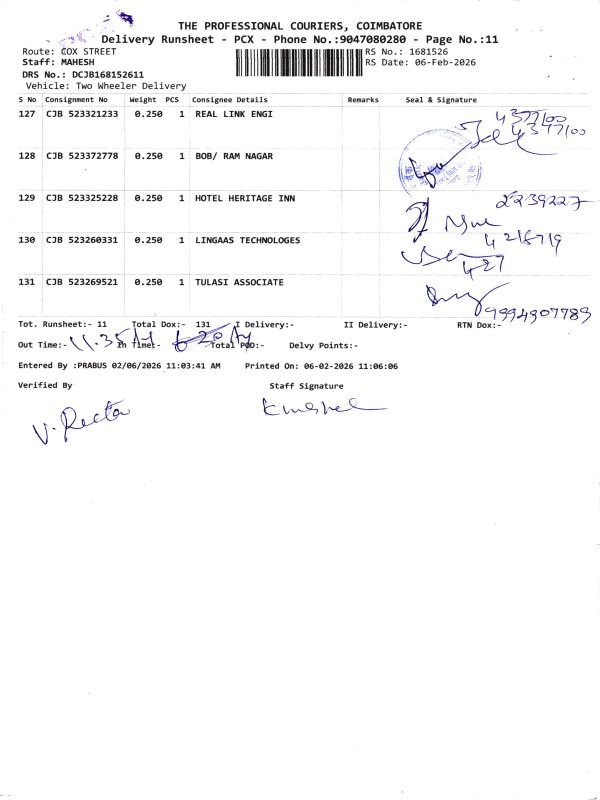 THE PROFESSIONAL COURIERS, COIMBATORE
Delivery Runsheet - PCX - Phone No.:9047080280 - Page No.:11
Route: COX STREET RS No.: 1681526
Staff: MAHESH RS Date: 06-Feb-2026
DRS No.: DCJB168152611
Vehicle: Two Wheeler Delivery
S No Consignment No Weight PCS Consignee Details Remarks Seal & Signature
127 CJB 523321233 0.250 1 REAL LINK ENGI
128 CJB 523372778 0.250 1 BOB/ RAM NAGAR
129 CJB 523325228 0.250 1 HOTEL HERITAGE INN 2239227
130 CJB 523260331 0.250 1 LINGAAS TECHNOLOGES
427
131 CJB 523269521 0.250 1 TULASI ASSOCIATE
9994907789
Tot. Runsheet:- 11 Total Dox:- 131 I Delivery:- II Delivery:- RTN Dox:-
Out Time:- 11.35 In Time:- 6-20 Total POD:- Delvy Points:-
Entered By :PRABUS 02/06/2026 11:03:41 AM Printed On: 06-02-2026 11:06:06
Verified By Staff Signature